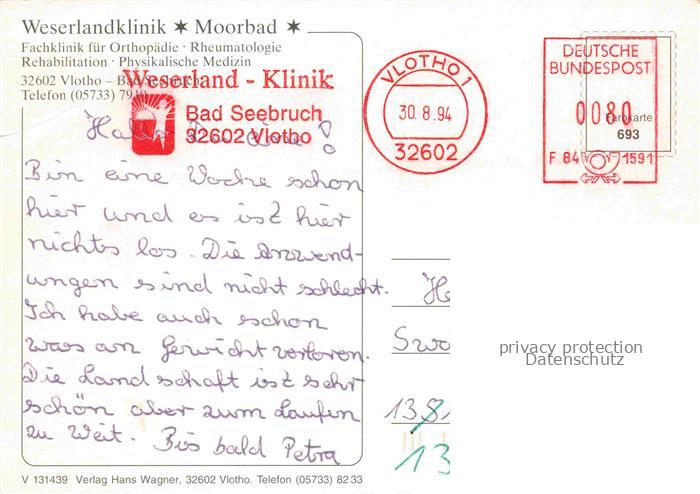 Weserlandklinik ✶ Moorbad ✶
Fachklinik für Orthopädie · Rheumatologie
Rehabilitation · Physikalische Medizin
32602 Vlotho – Bad Seebruch
Telefon (05733) 79
Weserland - Klinik
Bad Seebruch
32602 Vlotho
VLOTHO 1
30.8.94
32602
DEUTSCHE
BUNDESPOST
0080
Farbkarte
693
F 84 1591
Bin eine Woche schon
hier und es ist hier
nichts los. Die Anwend-
ungen sind nicht schlecht.
Ich habe auch schon
was an Gewicht verloren.
Die Landschaft ist sehr
schön aber zum Laufen
zu Weit. Bis bald Petra
He
Swo
13
13
privacy protection
Datenschutz
V 131439 Verlag Hans Wagner, 32602 Vlotho. Telefon (05733) 82 33